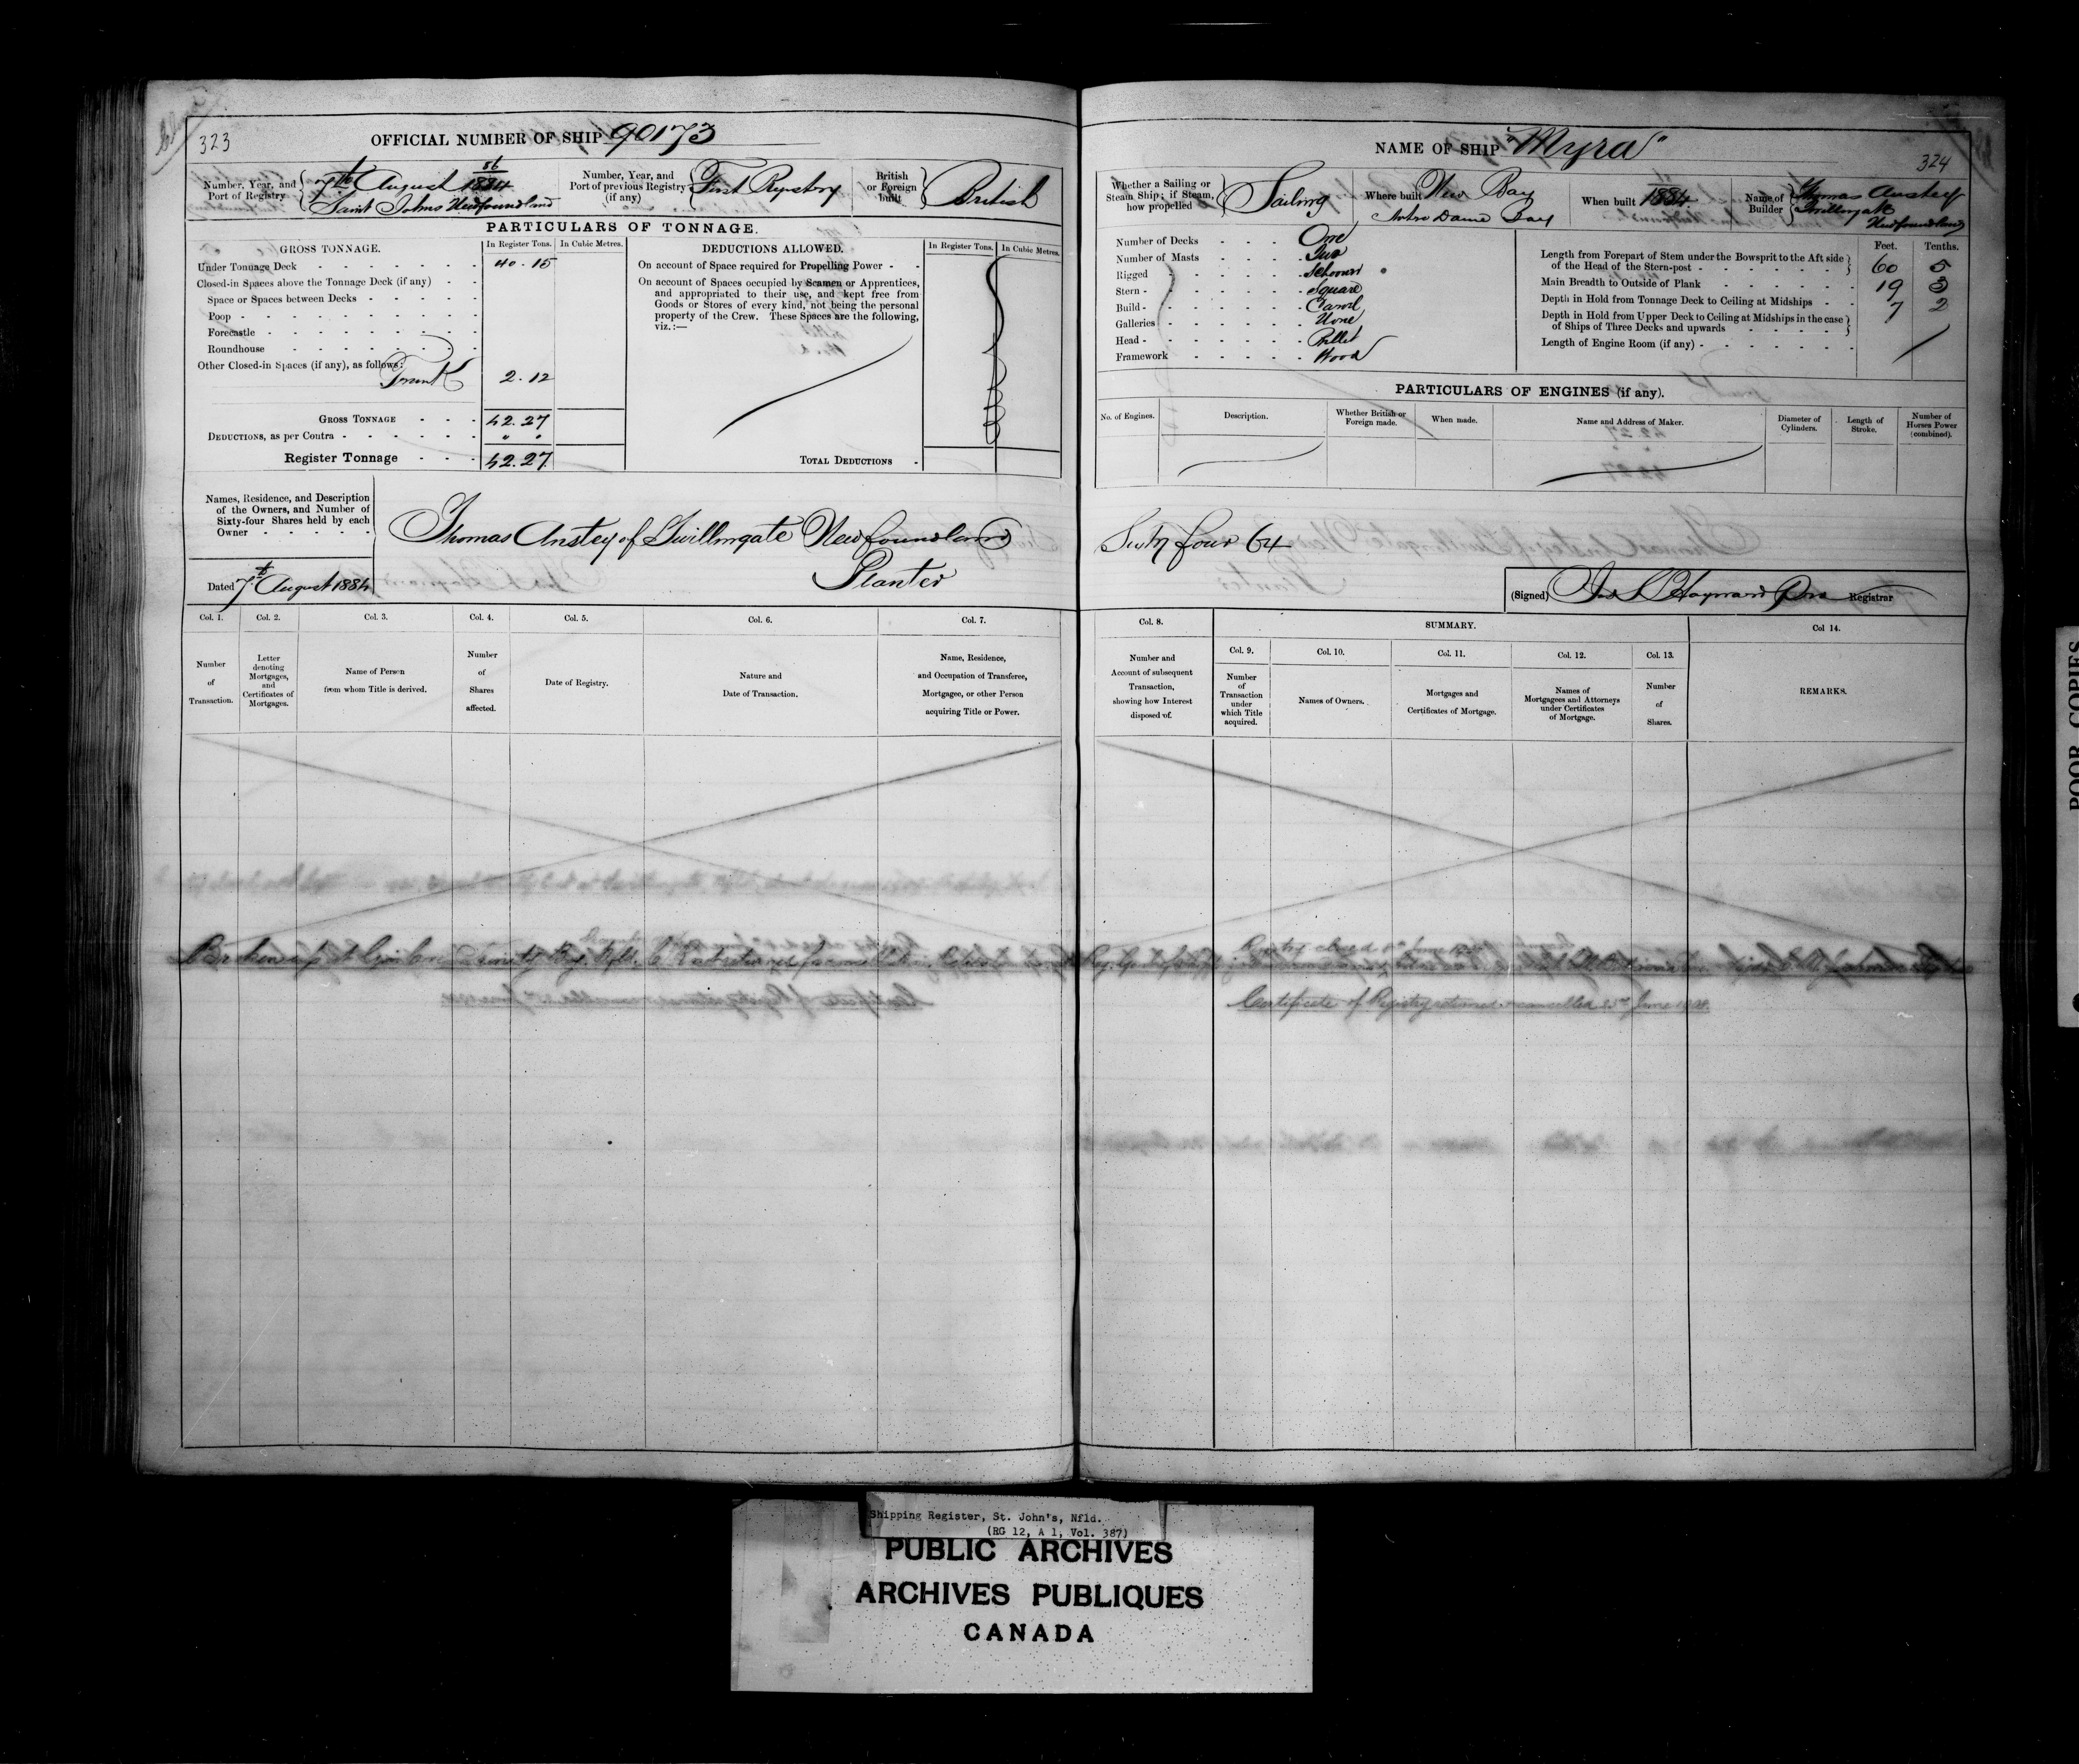 323
OFFICIAL NUMBER OF SHIP 90173
Number, Year, and Port of Registry
56
7th August 1884
Saint Johns Newfoundland
Number, Year, and Port of previous Registry (if any)
First Registry
British or Foreign built
British
PARTICULARS OF TONNAGE.
GROSS TONNAGE.
In Register Tons.
In Cubic Metres.
Under Tonnage Deck 40.15
Closed-in Spaces above the Tonnage Deck (if any)
Space or Spaces between Decks
Poop
Forecastle
Roundhouse
Other Closed-in Spaces (if any), as follows:
Trunk 2.12
GROSS TONNAGE 42.27
DEDUCTIONS, as per Contra " "
Register Tonnage 42.27
DEDUCTIONS ALLOWED.
In Register Tons.
In Cubic Metres.
On account of Space required for Propelling Power
On account of Spaces occupied by Seamen or Apprentices,
and appropriated to their use, and kept free from
Goods or Stores of every kind, not being the personal
property of the Crew. These Spaces are the following,
viz.:—
TOTAL DEDUCTIONS
Names, Residence, and Description
of the Owners, and Number of
Sixty-four Shares held by each
Owner
Thomas Anstey of Twillingate Newfoundland
Planter
Dated 7th August 1884
Col. 1.
Number of Transaction.
Col. 2.
Letter denoting Mortgages, and Certificates of Mortgages.
Col. 3.
Name of Person from whom Title is derived.
Col. 4.
Number of Shares affected.
Col. 5.
Date of Registry.
Col. 6.
Nature and Date of Transaction.
Col. 7.
Name, Residence, and Occupation of Transferee, Mortgagee, or other Person acquiring Title or Power.
Broken up at Trinity Bay Nfld.
NAME OF SHIP "Myra"
324
Whether a Sailing or Steam Ship; if Steam, how propelled
Sailing
Where built
New Bay
Notre Dame Bay
When built 1884
Name of Builder
Thomas Anstey
Twillingate
Newfoundland
Number of Decks One
Number of Masts Two
Rigged Schooner
Stern Square
Build Carvel
Galleries None
Head Billet
Framework Wood
Feet. Tenths.
Length from Forepart of Stem under the Bowsprit to the Aft side
of the Head of the Stern-post 60 5
Main Breadth to Outside of Plank 19 3
Depth in Hold from Tonnage Deck to Ceiling at Midships 7 2
Depth in Hold from Upper Deck to Ceiling at Midships in the case
of Ships of Three Decks and upwards
Length of Engine Room (if any)
PARTICULARS OF ENGINES (if any).
No. of Engines.
Description.
Whether British or Foreign made.
When made.
Name and Address of Maker.
Diameter of Cylinders.
Length of Stroke.
Number of Horses Power (combined).
Sixty four 64
(Signed) Hayward Registrar
Col. 8.
Number and Account of subsequent Transaction, showing how Interest disposed of.
SUMMARY.
Col. 9.
Number of Transaction under which Title acquired.
Col. 10.
Names of Owners.
Col. 11.
Mortgages and Certificates of Mortgage.
Col. 12.
Names of Mortgagees and Attorneys under Certificates of Mortgage.
Col. 13.
Number of Shares.
Col 14.
REMARKS.
Registry closed June
Certificate of Registry returned cancelled June
POOR COPIES
Shipping Register, St. John's, Nfld.
(RG 12, A 1, Vol. 387)
PUBLIC ARCHIVES
ARCHIVES PUBLIQUES
CANADA